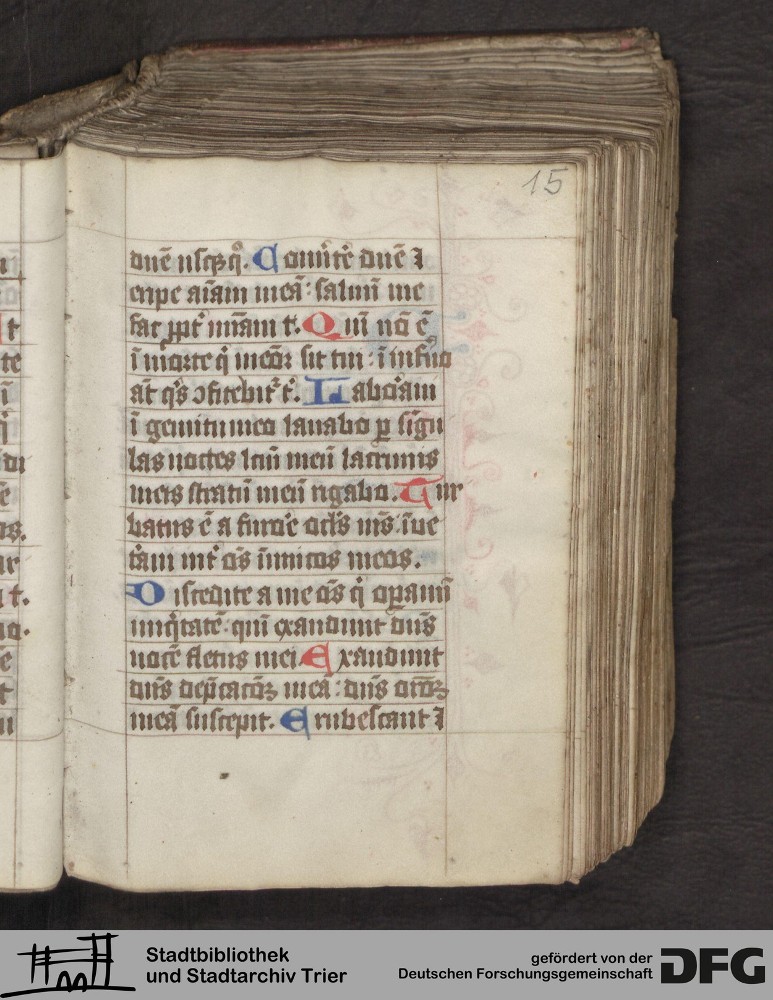 15
dn̄e usq̄ꝫ qͦ. Conu̾te᷑ dn̄e ⁊
eripe ai᷑am meā: saluū me
fac ꝓpt᷑ mīam t. Qm̄ nō ē
ī morte q̄ meōꝛ sit tui: ī infno
aūt q̇s ↄfitebit᷑ t. Laboͣui
ī gemitu meo lauabo ꝑ sigu
las noctes lc̄m meū lacrimis
meis stratū meū rigabo. Tur
batus ē a furoͤe ocl̄s ms̄: īue
tͣui int᷑ oēs īimicos meos.
Discedite a me oēs q̇ oꝑamī
iniq̇tatē: qm̄ exaudiuit dn̄s
uocē fletus mei. Exaudiuit
dn̄s dep̄catōeꝫ meā: dn̄s orōeꝫ
meā suscepit. Erubescant ⁊
Stadtbibliothek
und Stadtarchiv Trier
gefördert von der
Deutschen Forschungsgemeinschaft
DFG